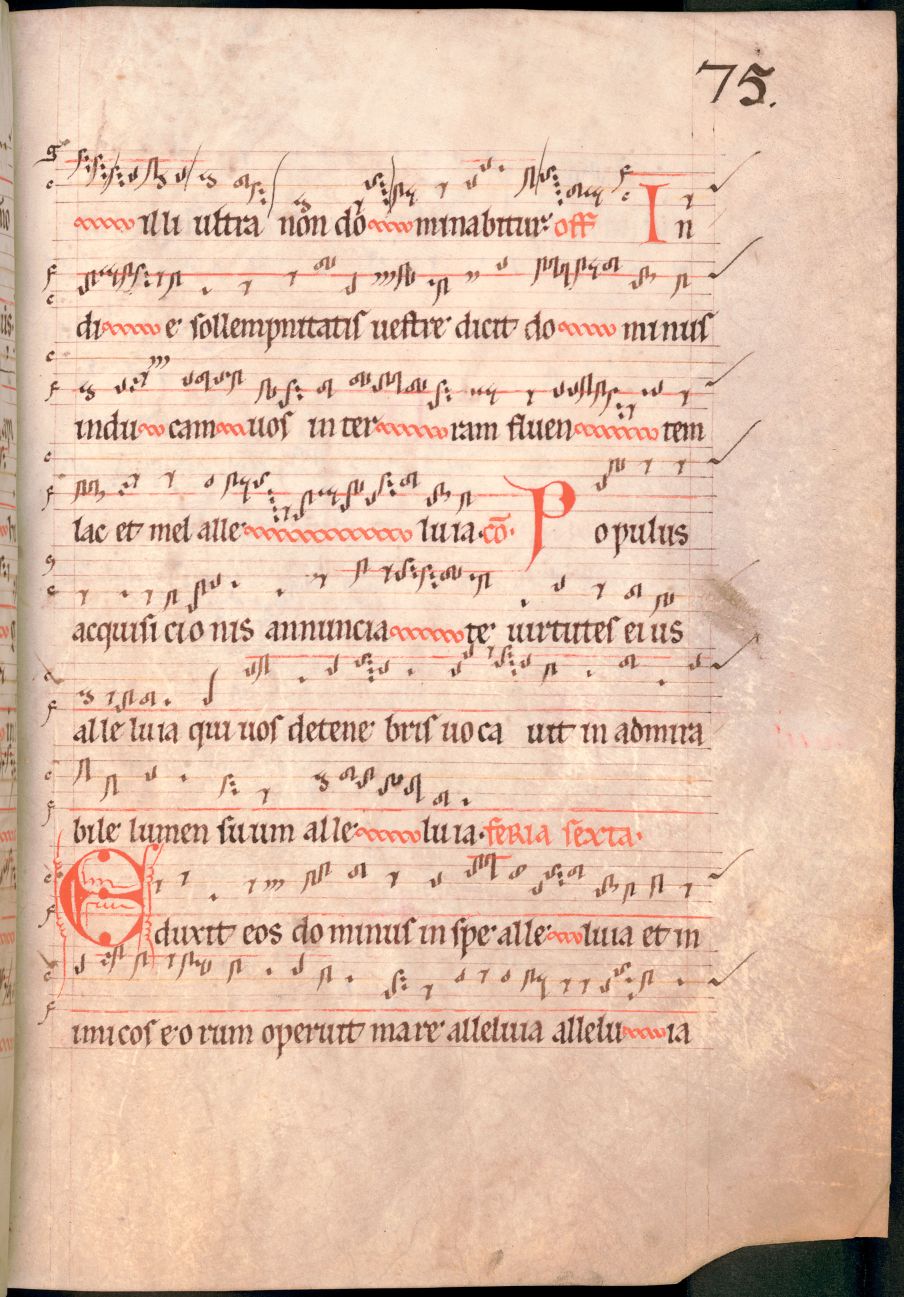 75.
illi ultra non do minabitur off In
di e sollempnitatis uestre dicit do minus
indu cam uos in ter ram fluen tem
lac et mel alle luia. cō. Populus
acquisicionis annuncia te uirtutes eius
alleluia qui uos detenebris uoca uit in admira
bile lumen suum alle luia. feria sexta.
Eduxit eos dominus in spe alle luia et in
imicos eorum operuit mare alleluia allelu ia